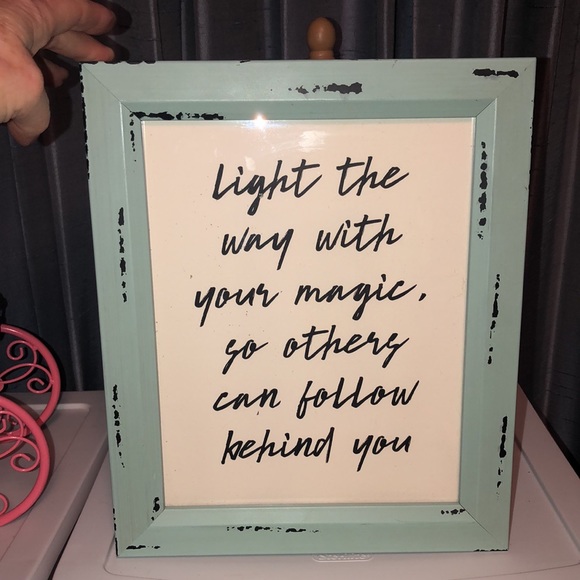 Light the
way with
your magic,
so others
can follow
behind you